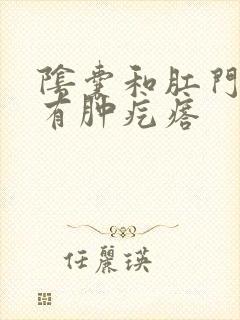 陰囊和肛門
有肿疙瘩
任麗瑛